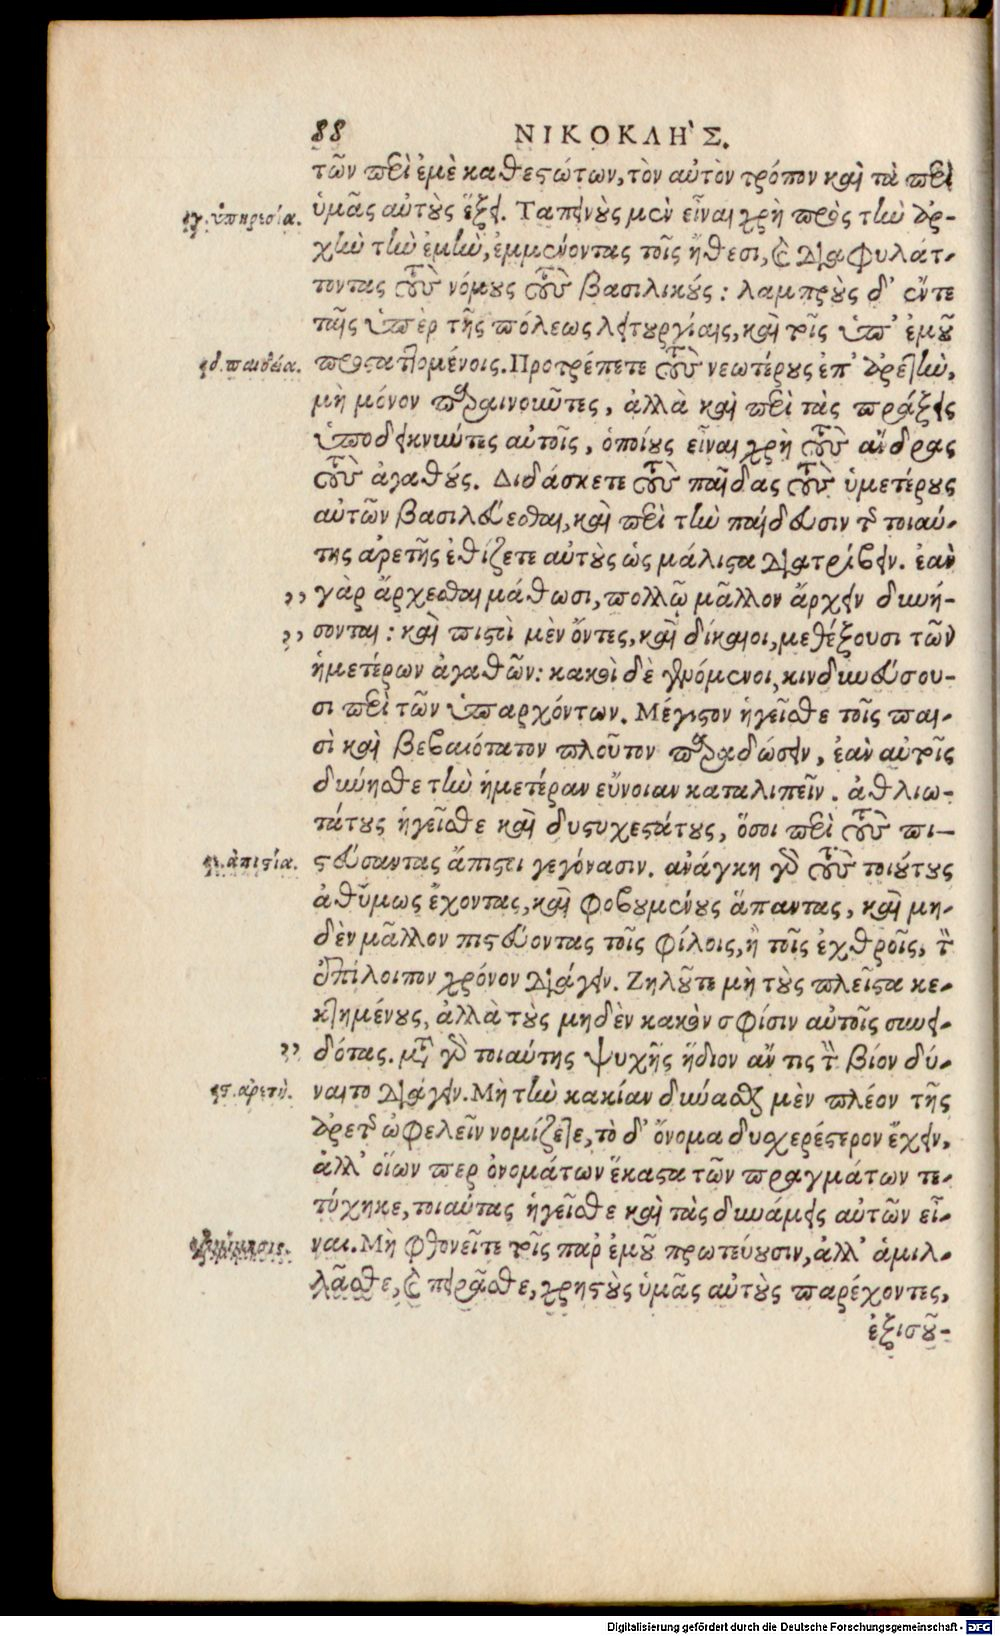 88 ΝΙΚΟΚΛΗ῀Σ.
τῶν περὶ ἐμὲ καθεστώτων, τὸν αὐτὸν τρόπον καὶ τὰ περὶ
ιγ. ὑπηρεσία.
ὑμᾶς αὐτοὺς ἕξειν. Ταπεινοὺς μὲν εἶναι χρὴ πρὸς τὴν ἀρ-
χὴν τὴν ἐμὴν, ἐμμένοντας τοῖς ἤθεσι, καὶ διαφυλάτ-
τοντας τοὺς νόμους τοὺς βασιλικούς: λαμπροὺς δ' ἔν τε
ταῖς ὑπὲρ τῆς πόλεως λειτουργίαις, καὶ τοῖς ὑπ' ἐμοῦ
ιδ. παιδεία.
προσταττομένοις. Προτρέπετε τοὺς νεωτέρους ἐπ' ἀρετὴν,
μὴ μόνον παραινοῦντες, ἀλλὰ καὶ περὶ τὰς πράξεις
ὑποδεικνύντες αὐτοῖς, ὁποίους εἶναι χρὴ τοὺς ἄνδρας
τοὺς ἀγαθούς. Διδάσκετε τοὺς παῖδας τοὺς ὑμετέρους
αὐτῶν βασιλεύεσθαι, καὶ περὶ τὴν παίδευσιν τῆς τοιαύ-
της ἀρετῆς ἐθίζετε αὐτοὺς ὡς μάλιστα διατρίβειν. ἐὰν
,, γὰρ ἄρχεσθαι μάθωσι, πολλῷ μᾶλλον ἄρχειν δυνή-
,, σονται: καὶ πιστοὶ μὲν ὄντες, καὶ δίκαιοι, μεθέξουσι τῶν
ἡμετέρων ἀγαθῶν: κακοὶ δὲ γενόμενοι, κινδυνεύσου-
σι περὶ τῶν ὑπαρχόντων. Μέγιστον ἡγεῖσθε τοῖς παι-
σὶ καὶ βεβαιότατον πλοῦτον παραδώσειν, ἐὰν αὐτοῖς
δύνησθε τὴν ἡμετέραν εὔνοιαν καταλιπεῖν. ἀθλιω-
τάτους ἡγεῖσθε καὶ δυστυχεστάτους, ὅσοι περὶ τοὺς πι-
ιε. ἀπιστία.
στεύσαντας ἄπιστοι γεγόνασιν. ἀνάγκη γὰρ τοὺς τοιούτους
ἀθύμως ἔχοντας, καὶ φοβουμένους ἅπαντας, καὶ μη-
δὲν μᾶλλον πιστεύοντας τοῖς φίλοις, ἢ τοῖς ἐχθροῖς, τὸν
ἐπίλοιπον χρόνον διάγειν. Ζηλοῦτε μὴ τοὺς πλεῖστα κε-
κτημένους, ἀλλὰ τοὺς μηδὲν κακὸν σφίσιν αὐτοῖς συνει-
,, δότας. μετὰ γὰρ τοιαύτης ψυχῆς ἥδιον ἄν τις τὸν βίον δύ-
ις. ἀρετὴ.
ναιτο διάγειν. Μὴ τὴν κακίαν δύνασθαι μὲν πλέον τῆς
ἀρετῆς ὠφελεῖν νομίζετε, τὸ δ' ὄνομα δυχερέστερον ἔχειν,
ἀλλ' οἵων περ ὀνομάτων ἕκαστα τῶν πραγμάτων τε-
τύχηκε, τοιαύτας ἡγεῖσθε καὶ τὰς δυνάμεις αὐτῶν εἶ-
ναι. Μὴ φθονεῖτε τοῖς παρ' ἐμοῦ πρωτεύουσιν, ἀλλ' ἁμιλ-
λᾶσθε, καὶ πειρᾶσθε, χρηστοὺς ὑμᾶς αὐτοὺς παρέχοντες,
ἐξισοῦ-
Digitalisierung gefördert durch die Deutsche Forschungsgemeinschaft - DFG